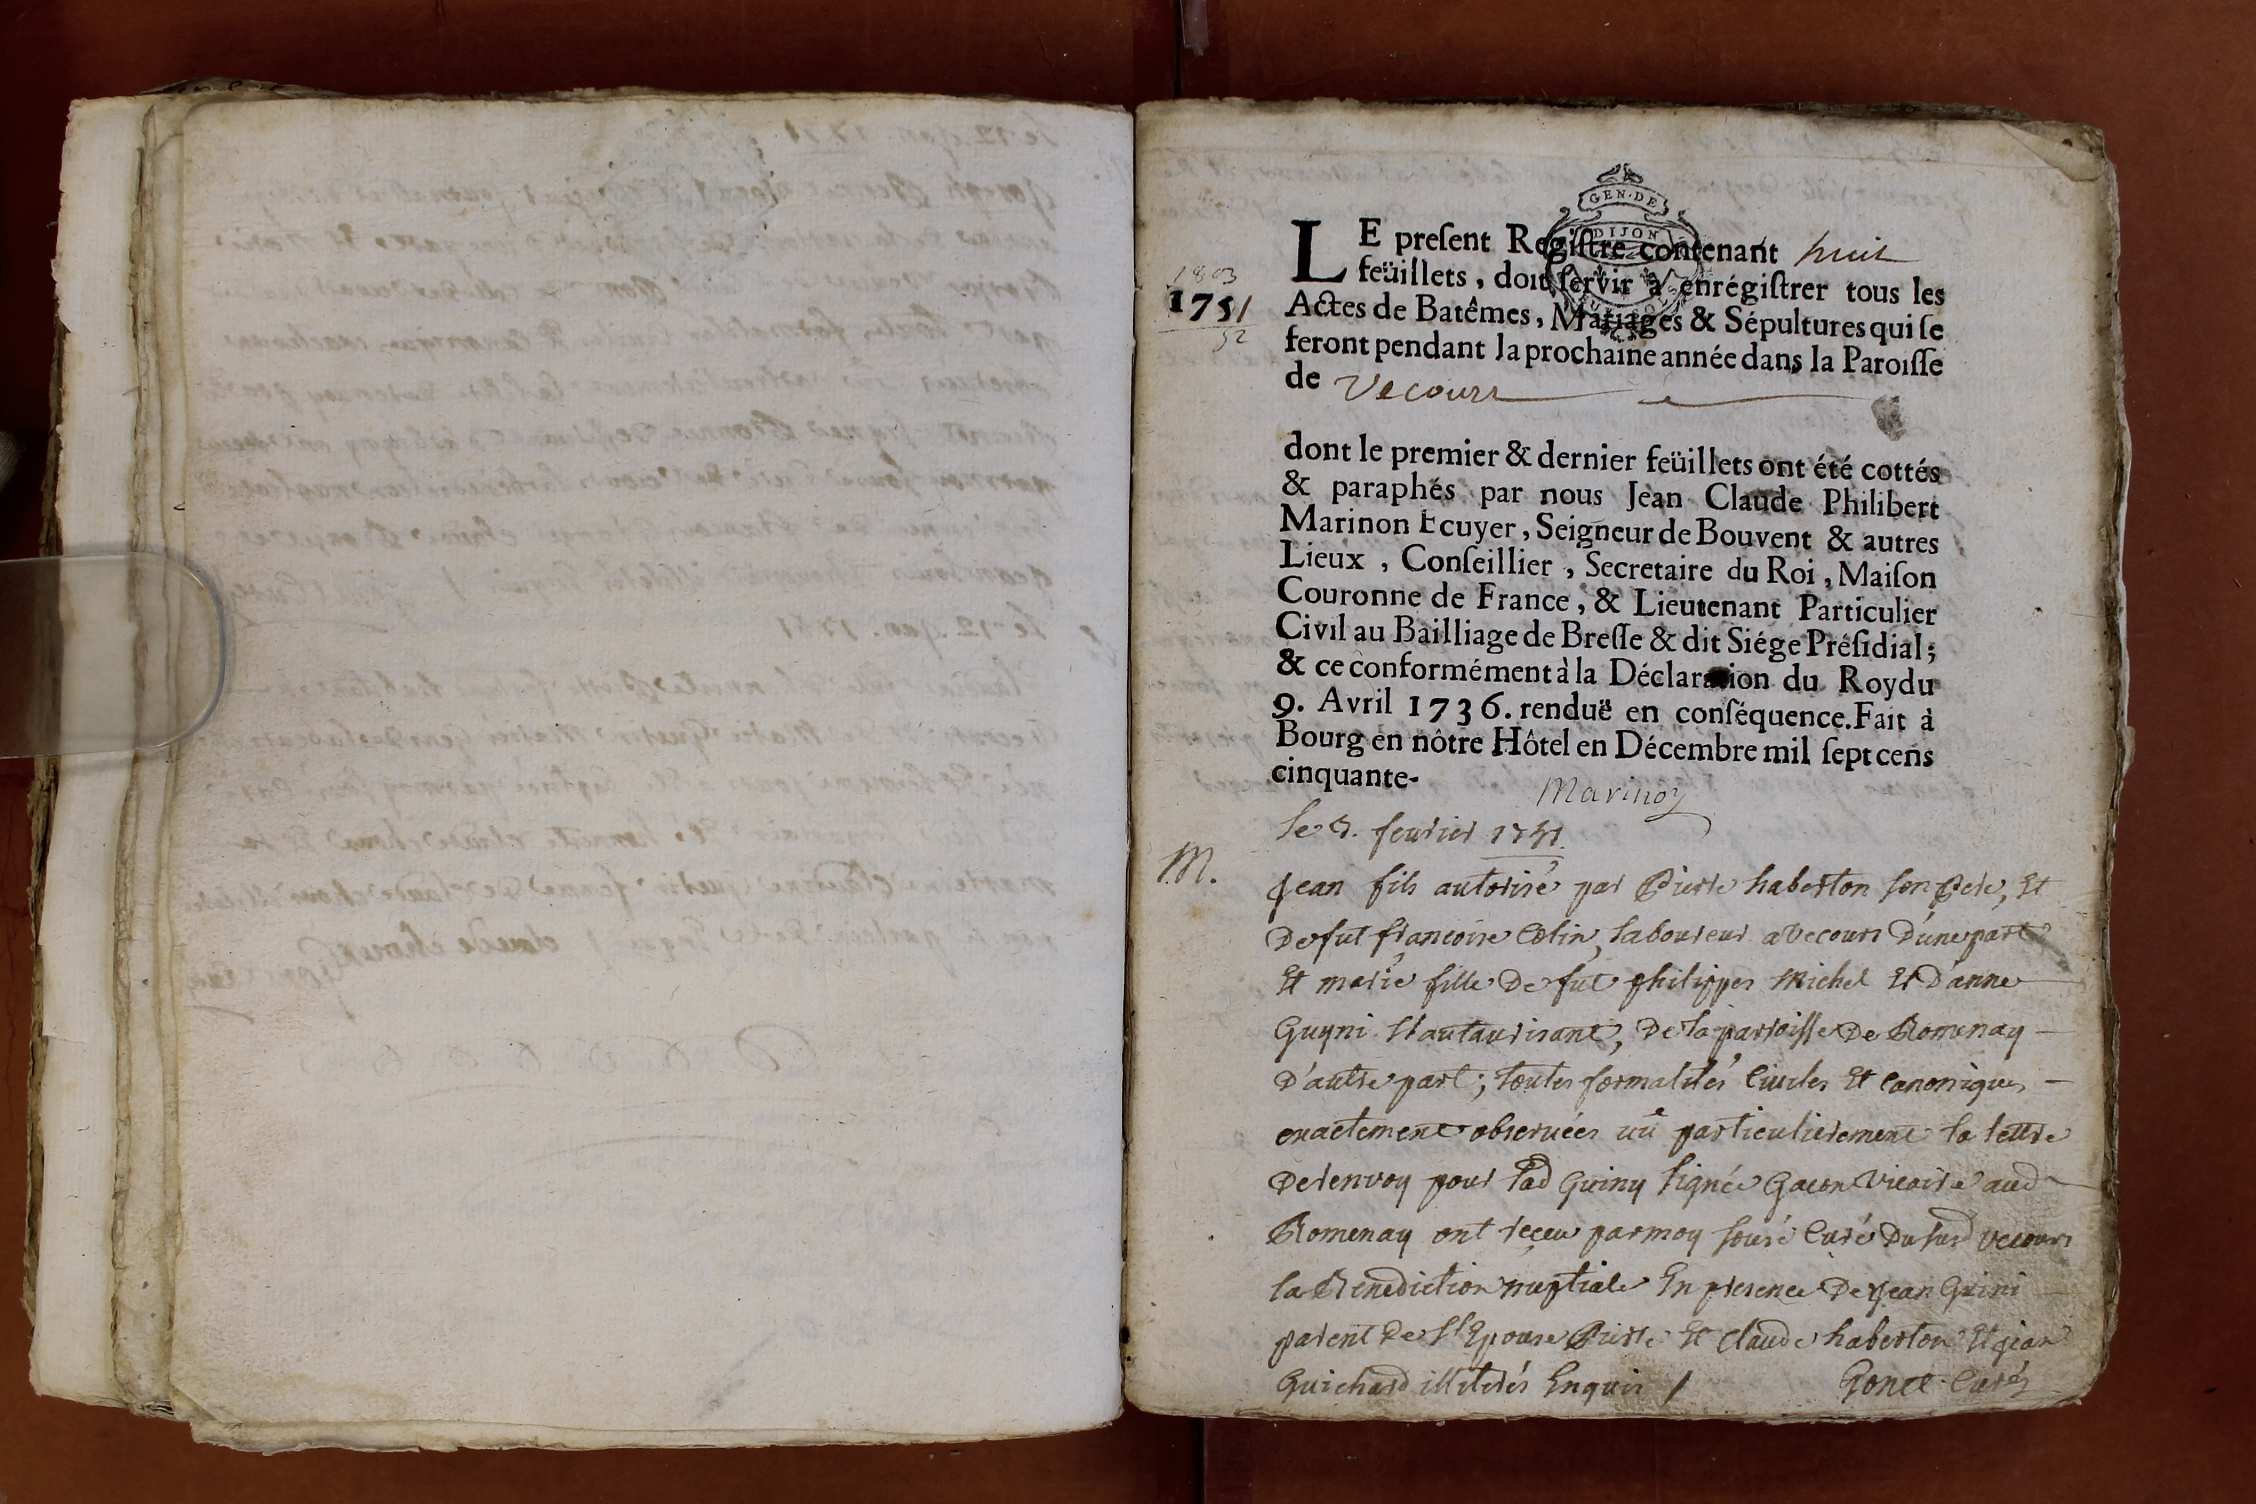 GEN·DE
DIJON
1803
1751
52
LE preſent Regiſtre contenant huit
feüillets, doit ſervir à enrégiſtrer tous les
Actes de Batêmes, Mariages & Sépultures qui ſe
feront pendant la prochaine année dans la Paroiſſe
de Vecours
dont le premier & dernier feüillets ont été cottés
& paraphés par nous Jean Claude Philibert
Marinon Ecuyer, Seigneur de Bouvent & autres
Lieux, Conſeillier, Secretaire du Roi, Maiſon
Couronne de France, & Lieutenant Particulier
Civil au Bailliage de Breſſe & dit Siége Préſidial;
& ce conformément à la Déclaration du Roy du
9. Avril 1736. renduë en conſéquence. Fait à
Bourg en nôtre Hôtel en Décembre mil ſept cens
cinquante-
Marinon
le fevrier 1751
M.
Jean fils autorisé par Pierre haberton son Pere, Et
De fut françoise Colin, laboureur a vecours D'une part
Et marie fille De fut philippes Michel Et D'anne
Guyni l'autaurisant, De la parroisse De Romenay
D'autre part; toutes formalités Civiles Et Canoniques
exactement observées vû particulierement la lettre
De renvoy pour lad Guiny signée Gacon vicaire aud
Romenay ont reçeu par moy sousé Curé Dususd vecours
la Benediction nuptiale En presence De Jean Guini
parent De l'Epouse Pierre Et Claude haberton Et jean
Guichard illiterés Enquis / Gonet Curé